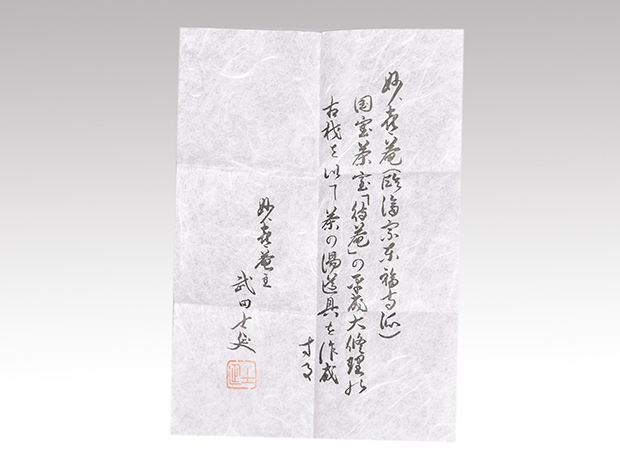 妙喜庵(臨済宗東福寺派)
国宝茶室「待庵」の平成大修理
古材を以て茶の湯道具を作成
する
妙喜庵主
武田士延